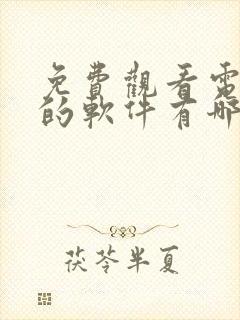 免費觀看電
的軟件有哪
茯苓半夏